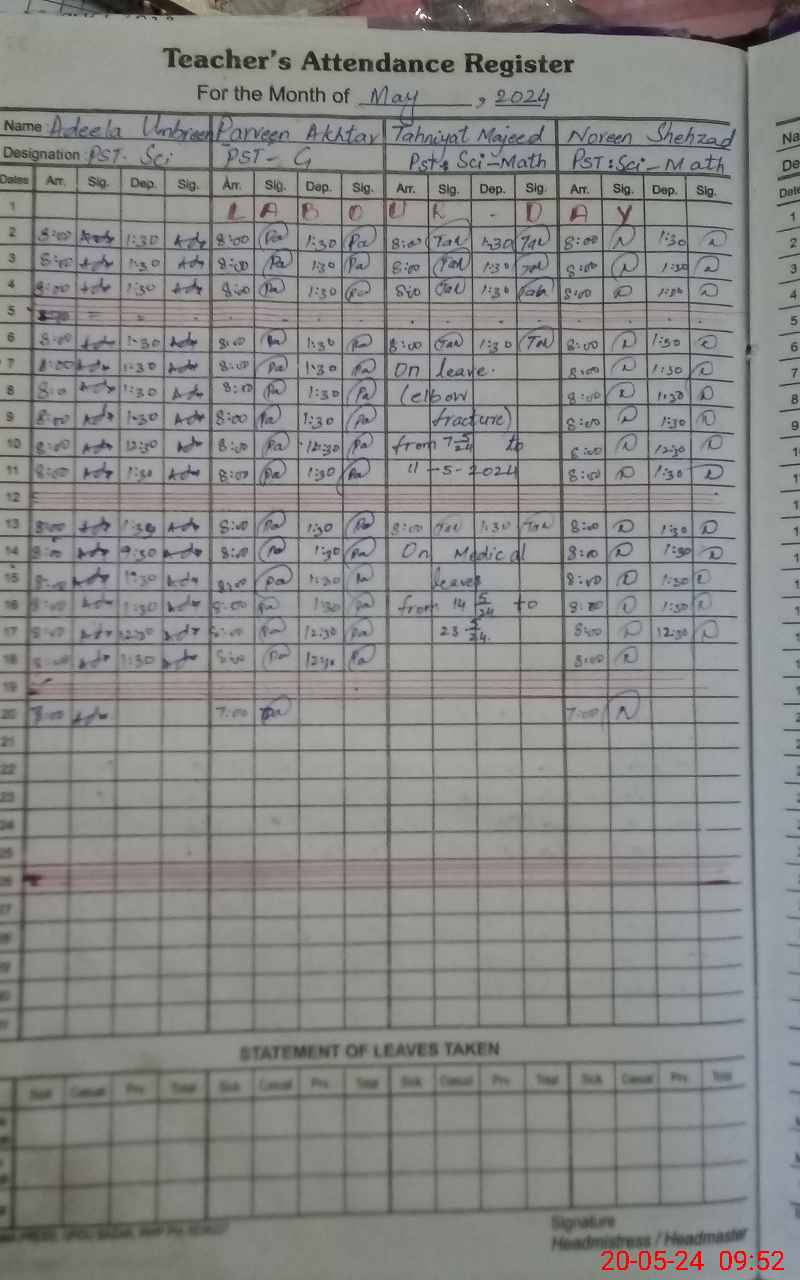 Teacher's Attendance Register
For the Month of May, 2024
Name: Adeela Umbreen Parveen Akhtar Tahniyat Majeed Noreen Shehzad
Designation: PST. Sci PST-G Pst: Sci-Math PST: Sci-Math
Dates Arr. Sig. Dep. Sig. Arr. Sig. Dep. Sig. Arr. Sig. Dep. Sig. Arr. Sig. Dep. Sig.
1 LABOUR - DAY
2 8:00 1:30 8:00 Pa 1:30 Pa 8:00 Tah 1:30 Tah 8:00 N 1:30 N
3 8:00 1:30 8:00 Pa 1:30 Pa 8:00 Tah 1:30 Tah 8:00 N 1:30 N
4 8:00 1:30 8:00 Pa 1:30 Pa 8:00 Tah 1:30 Tah 8:00 N 1:30 N
5
6 8:00 1:30 8:00 Pa 1:30 Pa 8:00 Tah 1:30 Tah 8:00 N 1:30 N
7 8:00 1:30 8:00 Pa 1:30 Pa On leave. 8:00 N 1:30 N
8 8:0 1:30 8:00 Pa 1:30 Pa (elbow 8:00 N 1:30 N
9 8:00 1:30 8:00 Pa 1:30 Pa fracture) 8:00 N 1:30 N
10 8:00 12:30 8:00 Pa 12:30 Pa from 7 5/24 to 8:00 N 12:30 N
11 8:00 1:30 8:00 Pa 1:30 Pa 11-5-2024 8:00 N 1:30 N
12
13 8:00 1:30 8:00 Pa 1:30 Pa 8:00 Tah 1:30 Tah 8:00 N 1:30 N
14 8:00 8:00 Pa 1:30 Pa On Medical 8:00 N 1:30 N
15 8:00 1:30 8:00 Pa 1:30 leaves 8:00 N 1:30 N
16 8:00 1:30 8:00 Pa 1:30 Pa from 14 5/24 to 8:00 N 1:30 N
17 8:00 12:30 8:00 Pa 12:30 Pa 23 5/24. 8:00 N 12:30 N
18 8:00 1:30 8:00 Pa 12:30 Pa 8:00 N
19
20 7:00 Pa 7:00 N
21
22
23
24
25
26
27
28
29
30
31
STATEMENT OF LEAVES TAKEN
Sick Casual Prv. Total Sick Casual Prv. Total Sick Casual Prv. Total Sick Casual Prv. Total
Signature
Headmistress / Headmaster
20-05-24 09:52